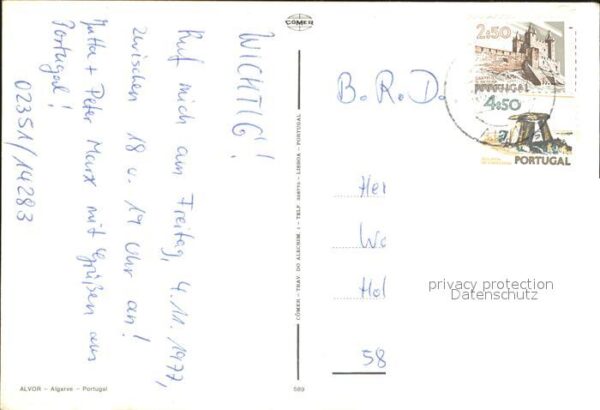 WICHTIG!
Ruf mich am Freitag, 4.11.1977,
zwischen 18 u. 19 Uhr an!
Jutta + Peter Marx mit Grüßen aus
Portugal!
02351/14283
ALVOR – Algarve – Portugal
CÔMER
CÔMER – TRAV. DO ALECRIM, 1 – TELF. – LISBOA – PORTUGAL
589
2$50
PORTUGAL
4$50
PORTUGAL
B. R. D.
Her
Wo
Hol
58
privacy protection
Datenschutz